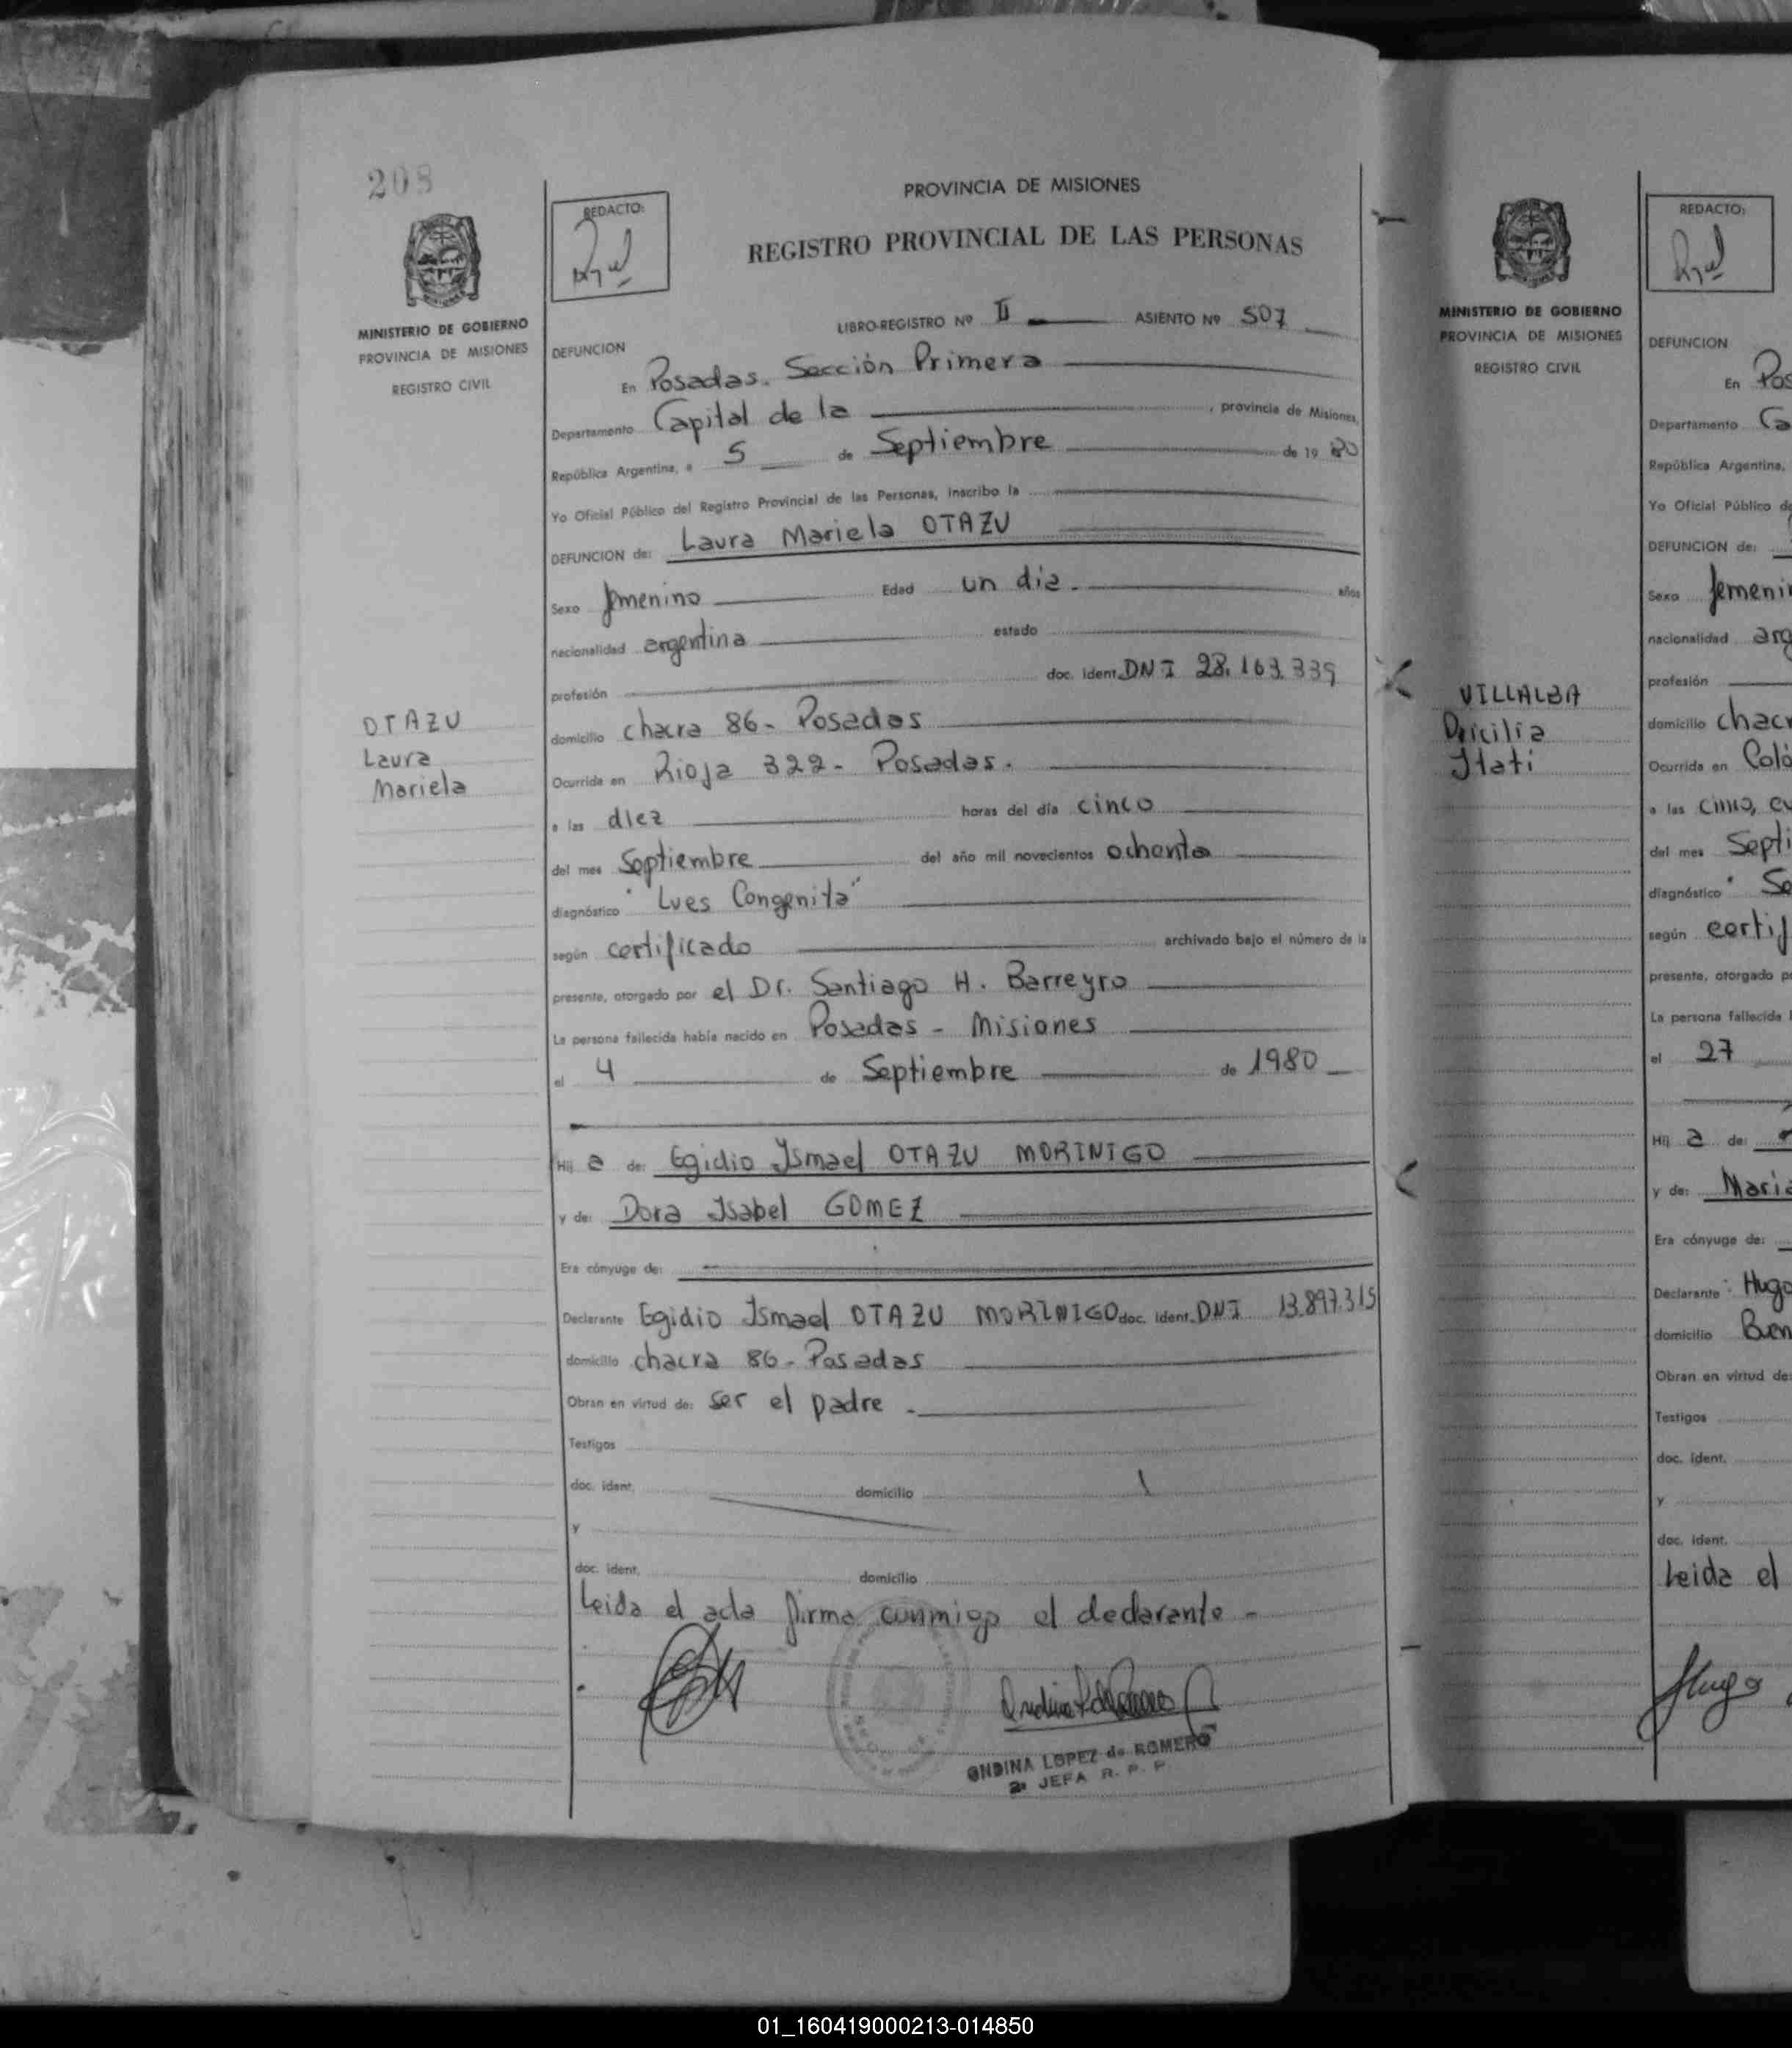 208
MINISTERIO DE GOBIERNO
PROVINCIA DE MISIONES
REGISTRO CIVIL
OTAZU
Laura
Mariela
REDACTO:
PROVINCIA DE MISIONES
REGISTRO PROVINCIAL DE LAS PERSONAS
LIBRO-REGISTRO Nº II ASIENTO Nº 507
DEFUNCION
En Posadas. Sección Primera
Departamento Capital de la , provincia de Misiones,
República Argentina, a 5 de Septiembre de 19 80
Yo Oficial Público del Registro Provincial de las Personas, inscribo la
DEFUNCION de: Laura Mariela OTAZU
Sexo femenino Edad un dia. años
nacionalidad argentina estado
profesión doc. ident. DNI 28.163.339
domicilio chacra 86- Posadas
Ocurrida en Rioja 322- Posadas.
a las diez horas del día cinco
del mes Septiembre del año mil novecientos ochenta
diagnóstico "Lues Congenita"
según certificado archivado bajo el número de la
presente, otorgado por el Dr. Santiago H. Barreyro
La persona fallecida había nacido en Posadas - Misiones
el 4 de Septiembre de 1980
Hij a de: Egidio Ismael OTAZU MORINIGO
y de: Dora Isabel GOMEZ
Era cónyuge de:
Declarante Egidio Ismael OTAZU MORINIGO doc. ident. DNI 13.897.315
domicilio chacra 86- Posadas
Obran en virtud de: ser el padre.
Testigos
doc. ident. domicilio
y
doc. ident. domicilio
Leida el acta firma conmigo el declarante-
ONDINA LOPEZ de ROMERO
2ª JEFA R. P. P.
MINISTERIO DE GOBIERNO
PROVINCIA DE MISIONES
REGISTRO CIVIL
VILLALBA
Itatí
REDACTO:
DEFUNCION
En Pos
Departamento Ca
República Argentina,
Yo Oficial Público de
DEFUNCION de:
Sexo femenin
nacionalidad arg
profesión
domicilio chacr
Ocurrida en Coló
a las cinco, cu
del mes Septi
diagnóstico " Se
según certif
presente, otorgado po
La persona fallecida h
el 27
Hij a de:
y de: Maria
Era cónyuge de:
Declarante : Hugo
domicilio Buen
Obran en virtud de:
Testigos
doc. ident.
y
doc. ident.
Leida el
Hugo
01_160419000213-014850